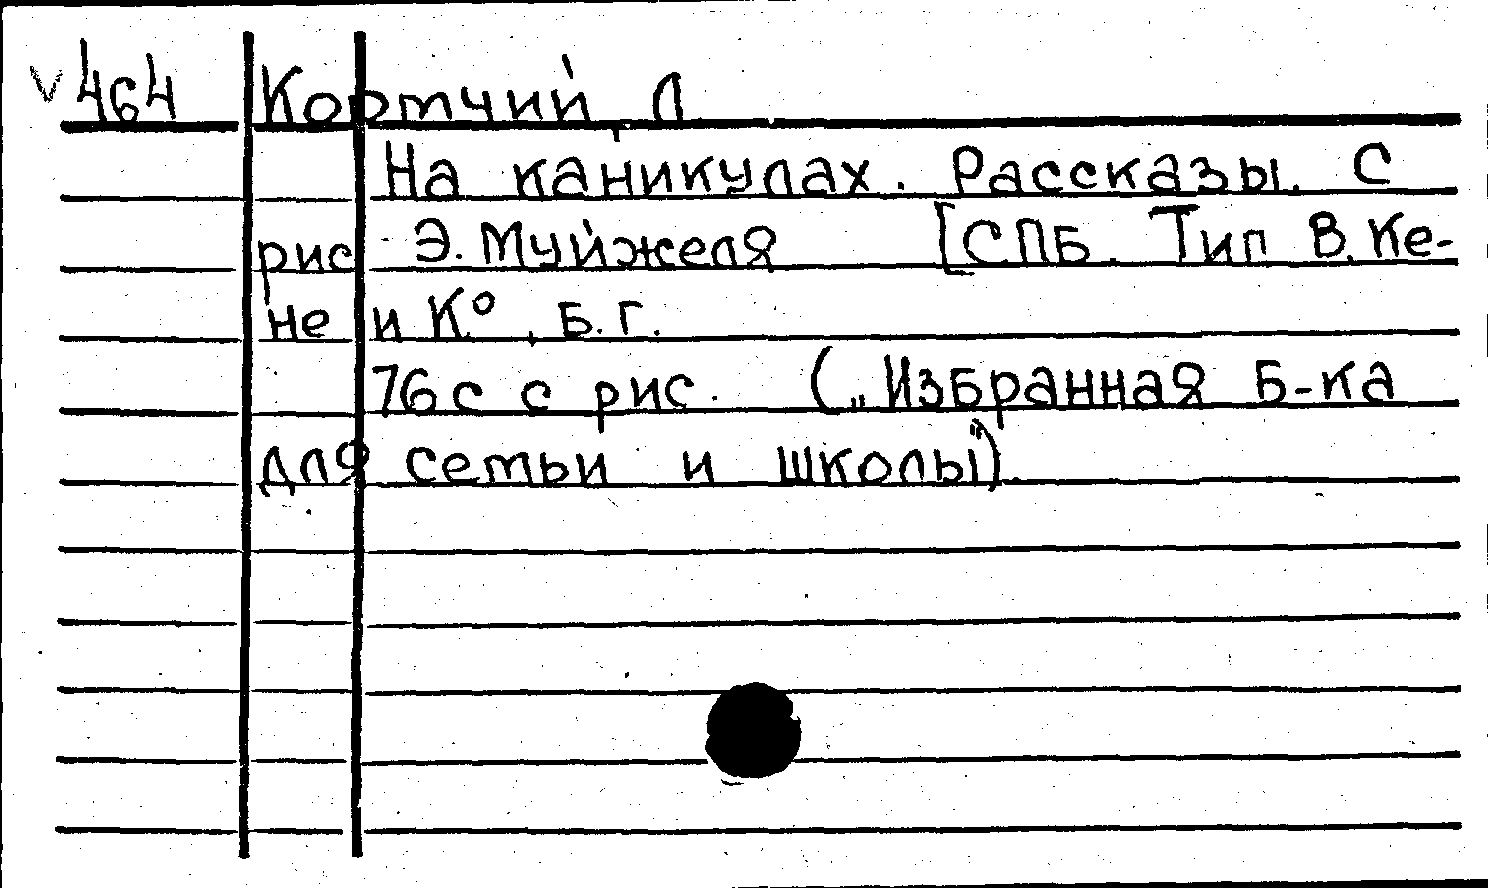 V 464 Кортчий, Л
На каникулах. Рассказы. С
рис Э. Муйжеля [СПБ. Тип В. Ке-
не и К°, Б. г.
76 с с рис. („Избранная Б-ка
для семьи и школы")